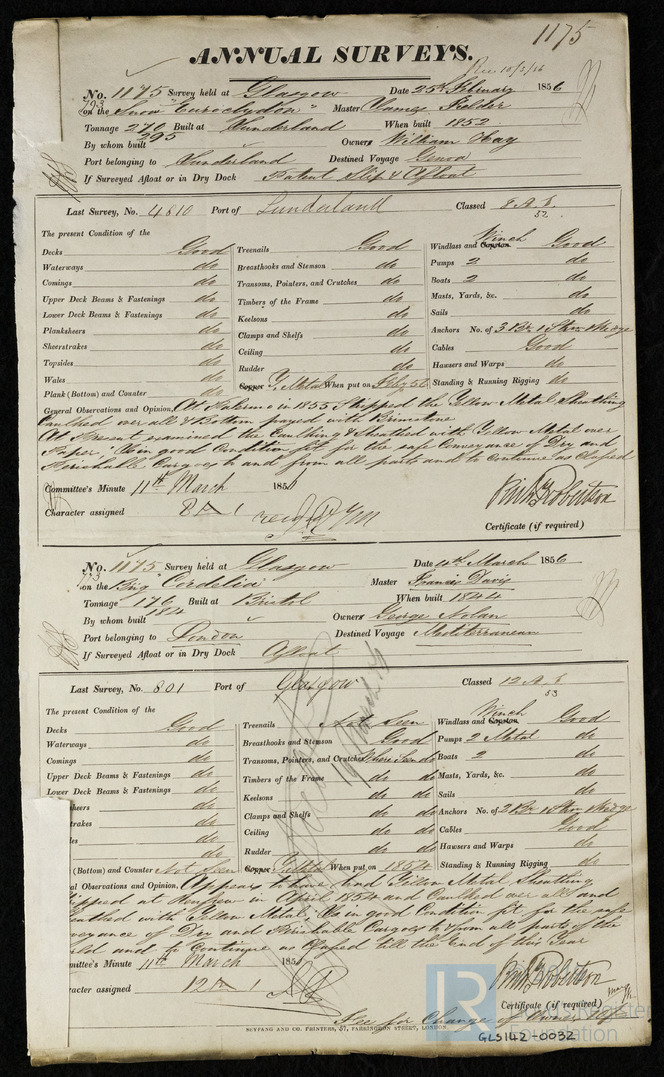 1175
ANNUAL SURVEYS.
Rec 10/3/56
No. 1175 Survey held at Glasgow Date 25th February 1856
793 on the Snow "Euroclydon" Master James Fielder
Tonnage 270 Built at Sunderland When built 1852
295
By whom built Owners William Hay
Port belonging to Sunderland Destined Voyage Genoa
If Surveyed Afloat or in Dry Dock Patent Slip & Afloat
Last Survey, No. 4810 Port of Sunderland Classed 8 A.1.
52.
The present Condition of the
Decks Good Treenails Good Windlass and Capstan Winch Good
Waterways do Breasthooks and Stemson do Pumps 2 do
Comings do Transoms, Pointers, and Crutches do Boats 2 do
Upper Deck Beams & Fastenings do Timbers of the Frame do Masts, Yards, &c. do
Lower Deck Beams & Fastenings do Keelsons do Sails do
Planksheers do Clamps and Shelfs do Anchors No. of 3 Br. 1 Stm 1 Kedge
Sheerstrakes do Ceiling do Cables Good
Topsides do Rudder do Hawsers and Warps do
Wales do Copper Y. Metal When put on Feby 56 Standing & Running Rigging do
Plank (Bottom) and Counter do
General Observations and Opinion, At Palermo in 1855 Stripped the Yellow Metal Sheathing
Caulked over all & Bottom payed with Brimstone
At Present examined the Caulking & Sheathed with Yellow Metal over
Paper, Is in good Condition fit for the safe Conveyance of Dry and
Perishable Cargoes to and from all parts and to Continue as Classed
Committee's Minute 11th March 1856
Character assigned 8 A 1
Robertson
Certificate (if required)
No. 1175 Survey held at Glasgow Date 4th March 1856
793 on the Brig "Cordelia" Master Francis Davis
Tonnage 176 Built at Bristol When built 1844
184
By whom built Owners George Nolan
Port belonging to London Destined Voyage Mediterranean
If Surveyed Afloat or in Dry Dock Afloat
Last Survey, No. 801 Port of Glasgow Classed 12 A.1.
53
The present Condition of the
Decks Good Treenails Not Seen Windlass and Capstan Winch Good
Waterways do Breasthooks and Stemson Good Pumps 2 Metal do
Comings do Transoms, Pointers, and Crutches Where Seen do Boats 2 do
Upper Deck Beams & Fastenings do Timbers of the Frame do do Masts, Yards, &c. do
Lower Deck Beams & Fastenings do Keelsons do do Sails do
sheers do Clamps and Shelfs do do Anchors No. of 3 Br. 1 Stm 1 Kedge
trakes do Ceiling do do Cables Good
les do Rudder do do Hawsers and Warps do
do Copper Y. Metal When put on 1854 Standing & Running Rigging do
(Bottom) and Counter Not Seen
al Observations and Opinion, Appears to have had Yellow Metal Sheathing
ipped at Renfrew in April 1854 and Caulked over all and
eathed with Yellow Metal, Is in good Condition fit for the safe
veyance of Dry and Perishable Cargoes to & from all parts of the
ld and to Continue as Classed till the End of this Year
mittee's Minute 11th March 1856
racter assigned 12 A 1
Robertson
Certificate (if required)
See for Change of Owners
SEYFANG AND CO. PRINTERS, 57, FARRINGDON STREET, LONDON
LR
Lloyd's Register
Foundation
GLS142-0032